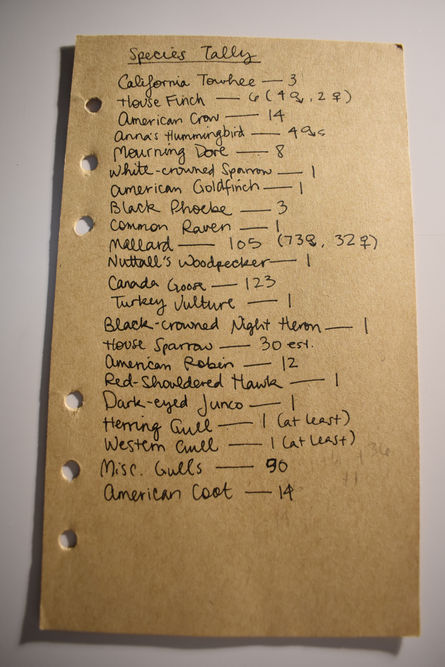 Species Tally
California Towhee — 3
House Finch — 6 (4♂, 2♀)
American Crow — 14
Anna's Hummingbird — 4♂s
Mourning Dove — 8
White-crowned Sparrow — 1
American Goldfinch — 1
Black Phoebe — 3
Common Raven — 1
Mallard — 105 (73♂, 32♀)
Nuttall's Woodpecker — 1
Canada Goose — 123
Turkey Vulture — 1
Black-crowned Night Heron — 1
House Sparrow — 30 est.
American Robin — 12
Red-Shouldered Hawk — 1
Dark-eyed Junco — 1
Herring Gull — 1 (at least)
Western Gull — 1 (at least)
Misc. Gulls — 90
American Coot — 14